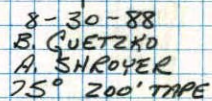 8-30-88
B. GUETZKO
A. SHROYER
75° 200' TAPE